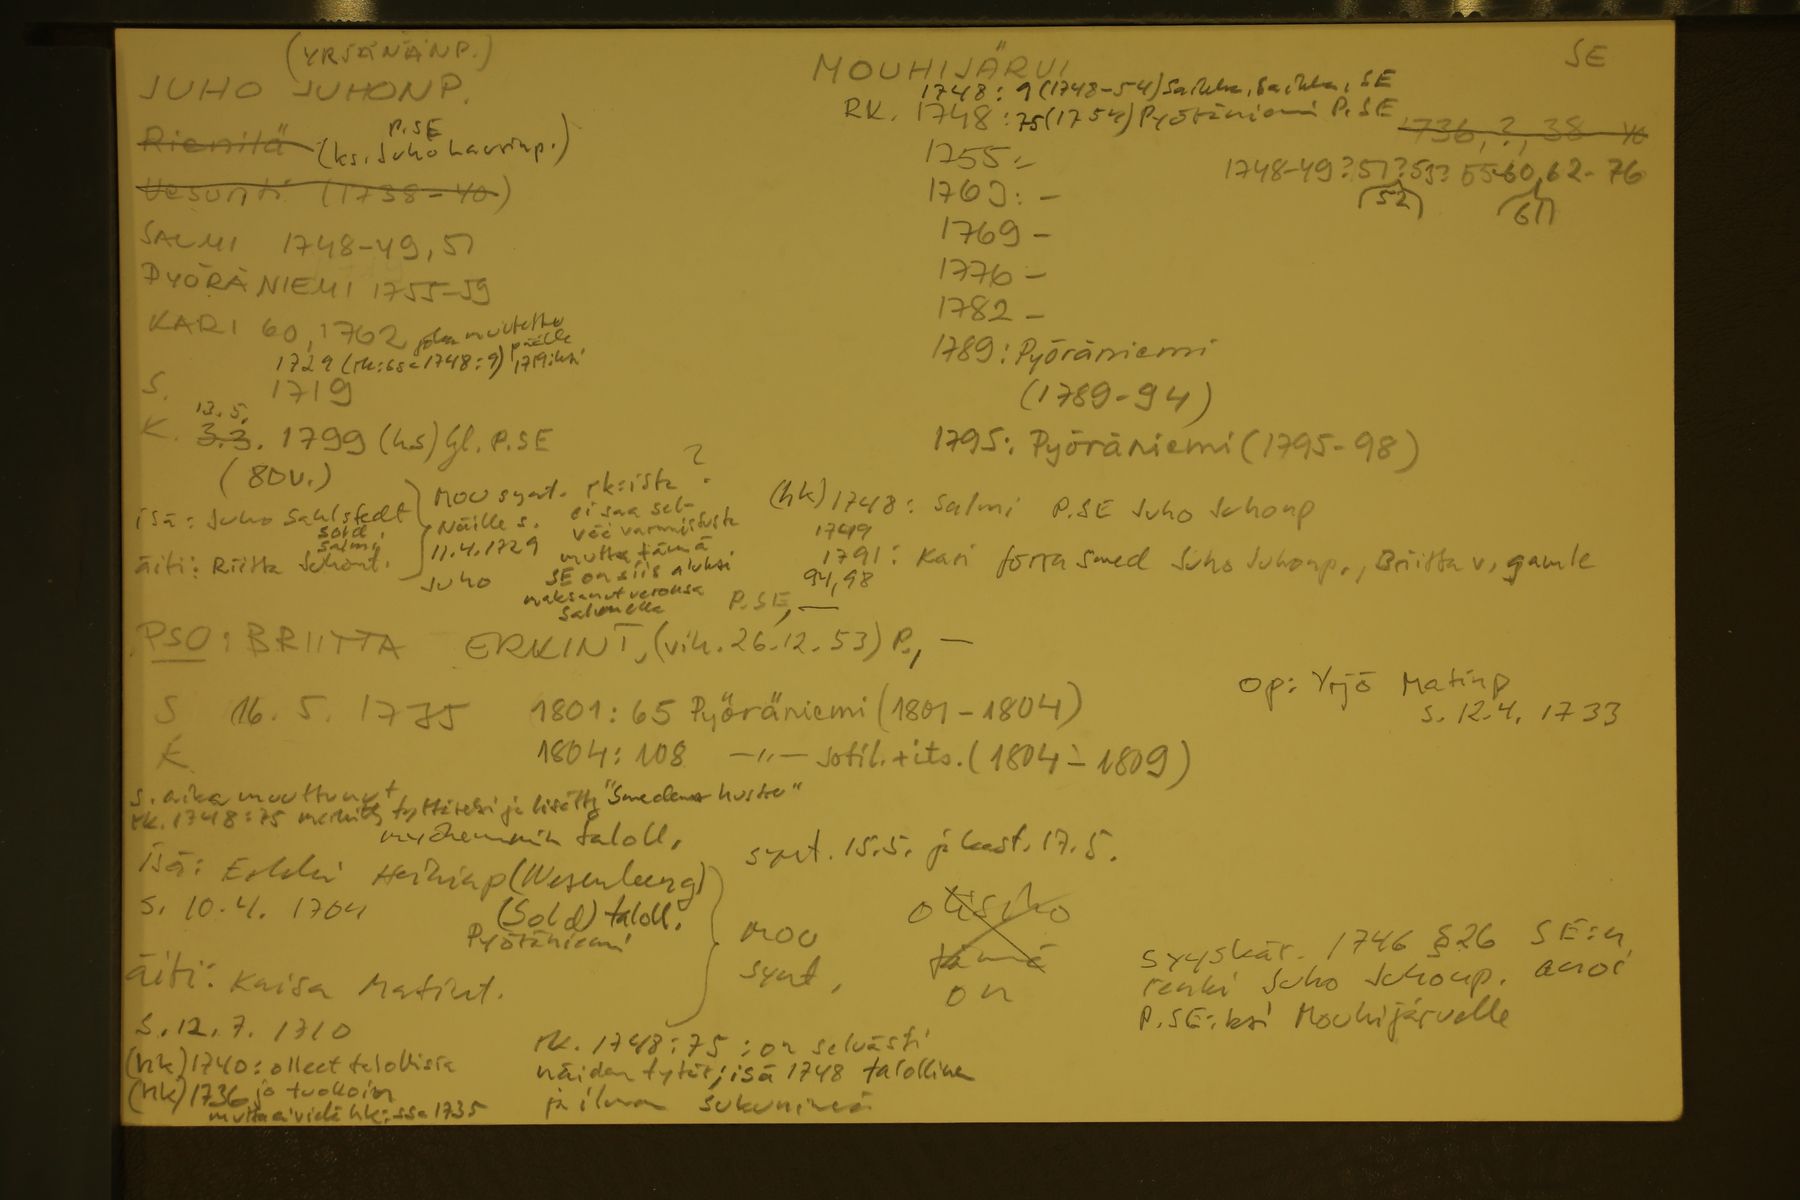 (YRJÄNÄNP.)
JUHO JUHONP.
P.SE
Rienilä (ks. Juho Laurinp.)
Vesunti (1738-40)
SALMI 1748-49, 51
PYÖRÄNIEMI 1755-59
KARI 60, 1762 joka muutettu
päälle
1729 (rk:ssa 1748:9) 1719:ksi
S. 1719
13.5.
K. 3.3. 1799 (hs) gl. P.SE
(80v.)
isä: Juho Sahlstedt
sold.
Salmi
äiti: Riitta Juhont.
Mou synt. rk:ista ?
Näille s.
11.4.1729
Juho
ei saa sel-
vää varmistusta
mutta tämä
SE on siis aluksi
maksanut veronsa
Salmella
MOUHIJÄRVI
SE
1748: 9 (1748-54) Saikka, Saikka, SE
RK. 1748: 75 (1754) Pyöräniemi P.SE
1736, ?, 38 40
1748-49? 51? 53? 55-60, 62-76
(52) (61)
1755: -
1763: -
1769 -
1776 -
1782 -
1789: Pyöräniemi
(1789-94)
1795: Pyöräniemi (1795-98)
(hk) 1748: Salmi P.SE Juho Juhonp
1749
1791: Kari förra Smed Juho Juhonp., Briitta v, gamle
94, 98
P.SE, —
PSO: BRIITTA ERKINT. (vih. 26.12.53) P., —
S 16. 5. 1735
K.
1801: 65 Pyöräniemi (1801-1804)
1804: 108 —"— sotil.+its. (1804-1809)
op: Yrjö Matinp
s. 12.4. 1733
s. aika muuttunut
rk. 1748:75 merkitty tyttäreksi ja lisätty "Smedens hustru"
myöhemmin taloll.
synt. 15.5. ja kast. 17.5.
Isä: Erkki Heikinp (Wesenberg)
s. 10.4. 1704 (Sold) taloll.
Pyöräniemi
äiti: Kaisa Matint.
s. 12. 7. 1710
mou
synt.
olisiko
tämä
on
(hk) 1740: olleet talollisia
(hk) 1736 jo tuolloin
mutta ei vielä hk:ssa 1735
rk. 1748:75: on selvästi
näiden tytär; isä 1748 talollinen
ja ilman sukunimeä
syyskär. 1746 §26 SE:n
renki Juho Juhonp. anoi
P.SE:ksi Mouhijärvelle